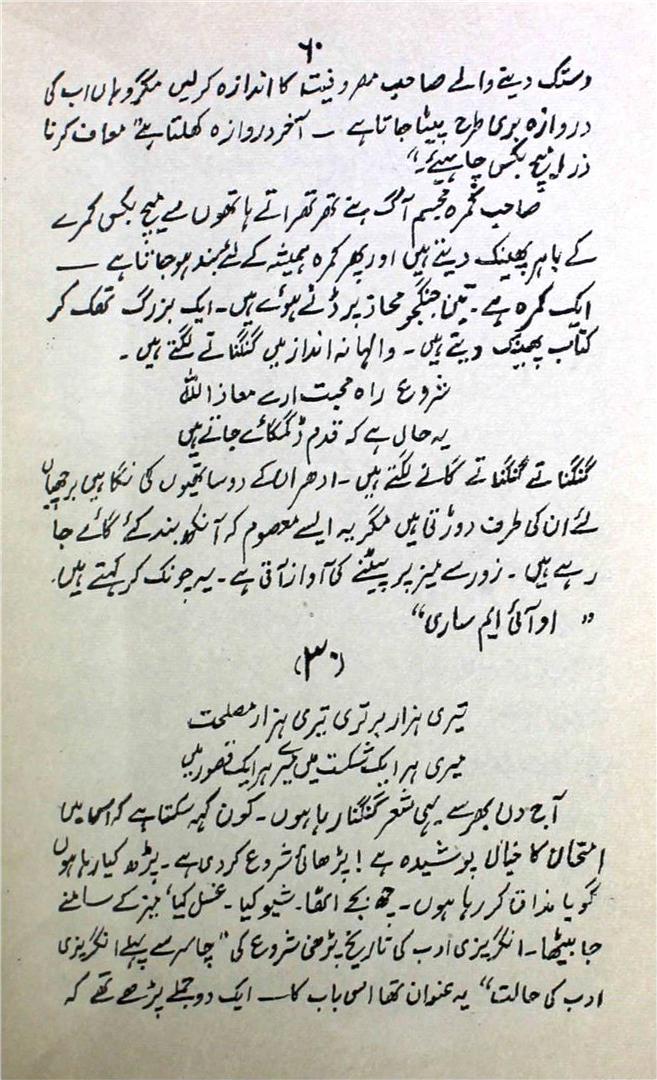 ۶۰
دستک دینے والے صاحب مصروفیت کا اندازہ کرلیں مگر وہاں اب کی
دروازہ بری طرح پیٹا جاتا ہے ــ آخر دروازہ کھلتا ہے" معاف کرنا
ذرا پیچ بکس چاہیئے۔"
صاحب کمرہ مجسم آگ بنے تھر تھراتے ہاتھوں سے پیچ بکس کمرے
کے باہر پھینک دیتے ہیں اور پھر کمرہ ہمیشہ کے لئے بند ہو جاتا ہے ــ
ایک کمرہ ہے۔ تین جنگجو محاذ پر ڈٹے ہوئے ہیں۔ ایک بزرگ تھک کر
کتاب پھینک دیتے ہیں۔ والہانہ انداز میں گنگنانے لگتے ہیں۔
شروع راہ محبت ارے معاذ اللہ
یہ حال ہے کہ قدم ڈگمگائے جاتے ہیں
گنگناتے گنگناتے گانے لگتے ہیں۔ ادھر ان کے دو ساتھیوں کی نگاہیں برچھیاں
لئے ان کی طرف دوڑتی ہیں مگر یہ ایسے معصوم کہ آنکھ بند کئے گائے جا
رہے ہیں۔ زور سے میز پر پیٹنے کی آواز آتی ہے۔ یہ چونک کر کہتے ہیں۔
" او آئی ایم ساری"
(۳۰)
تیری ہزار برتری تیری ہزار مصلحت
میری ہر ایک شکست میں میرے ہر ایک قصور میں
آج دن بھر سے یہی شعر گنگنا رہا ہوں۔ کون کہہ سکتا ہے کہ اسمیں
امتحان کا خیال پوشیدہ ہے! پڑھائی شروع کر دی ہے۔ پڑھ کیا رہا ہوں
گویا مذاق کر رہا ہوں۔ چھ بجے اٹھا۔ شیو کیا۔ غسل کیا، میز کے سامنے
جا بیٹھا۔ انگریزی ادب کی تاریخ پڑھنی شروع کی "چاسر سے پہلے انگریزی
ادب کی حالت" یہ عنوان تھا اس باب کا ــ ایک دو جملے پڑھے تھے کہ